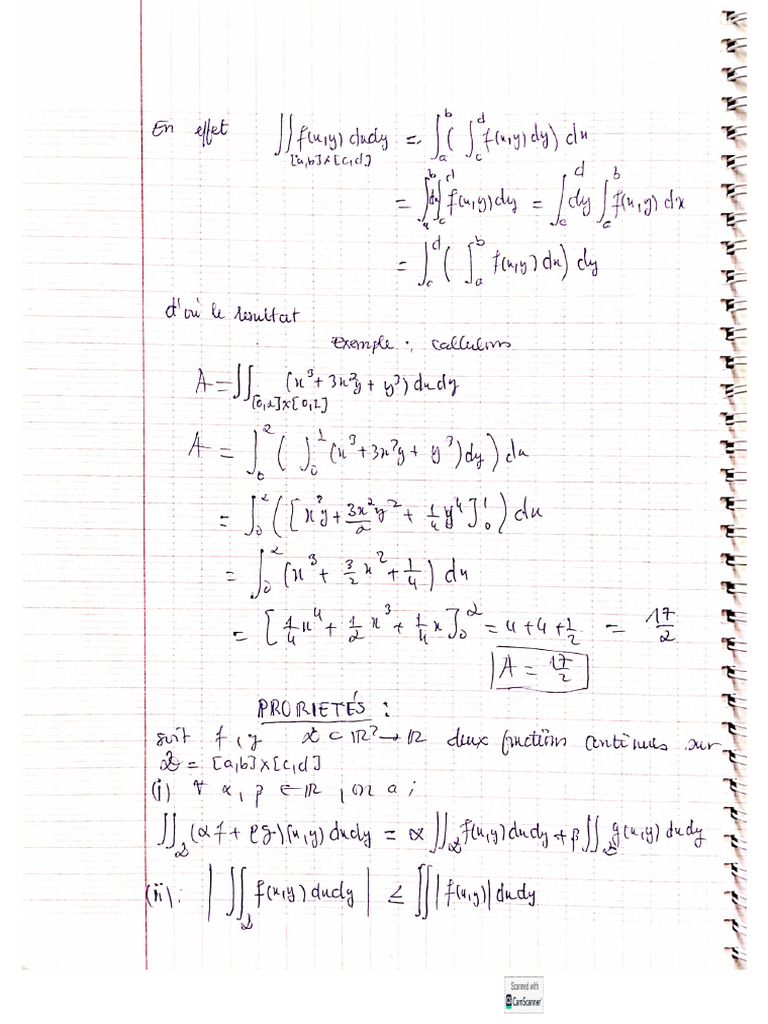 En effet ∬_{[a,b]×[c,d]} f(x,y) dxdy = ∫_a^b ( ∫_c^d f(x,y) dy) dx
= ∫_a^b dx ∫_c^d f(x,y) dy = ∫_c^d dy ∫_a^b f(x,y) dx
= ∫_c^d ( ∫_a^b f(x,y) dx) dy
d'où le resultat
Exemple : calculons
A = ∬_{[0,2]×[0,1]} (x³ + 3x²y + y³) dxdy
A = ∫_0^2 ( ∫_0^1 (x³ + 3x²y + y³) dy ) dx
= ∫_0^2 ( [x³y + 3x²/2 y² + 1/4 y⁴]_0^1 ) dx
= ∫_0^2 (x³ + 3/2 x² + 1/4) dx
= [1/4 x⁴ + 1/2 x³ + 1/4 x]_0^2 = 4 + 4 + 1/2 = 17/2
A = 17/2
PRORIETÉS :
soit f, g D ⊂ IR² → IR deux fonctions continues sur
D = [a,b]×[c,d]
(i) ∀ α, β ∈ IR, on a ;
∬_D (αf + βg)(x,y) dxdy = α ∬_D f(x,y) dxdy + β ∬_D g(x,y) dxdy
(ii). | ∬_D f(x,y) dxdy | ≤ ∬ |f(x,y)| dxdy
Scanned with
CamScanner